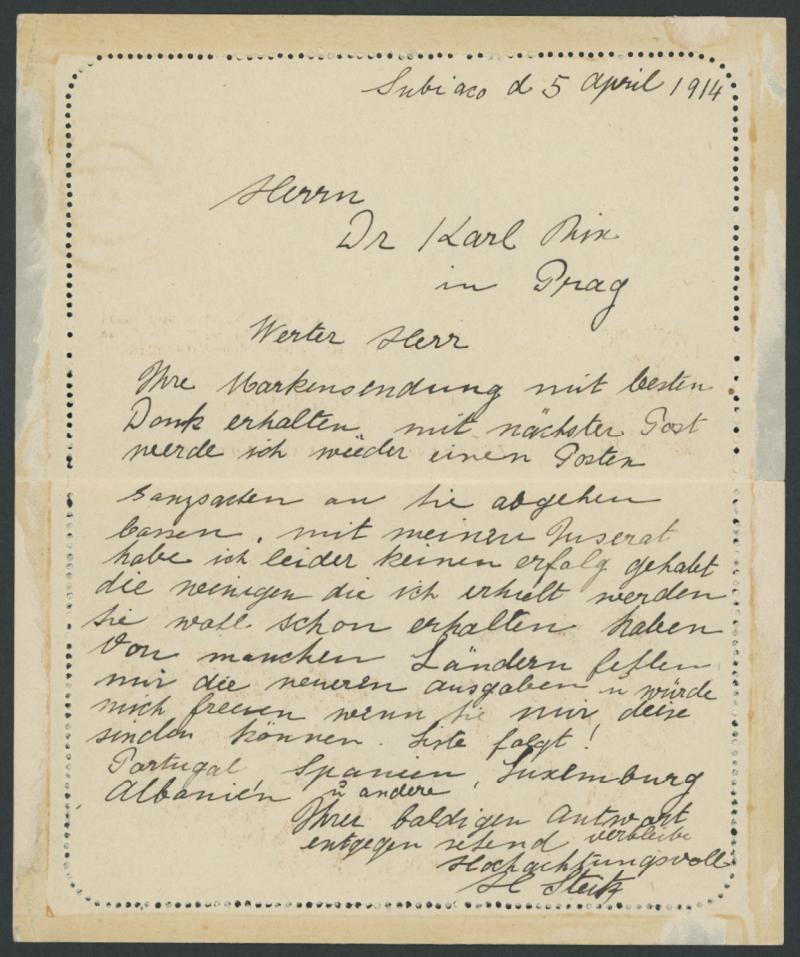 Subiaco d 5 April 1914
Herrn
Dr Karl Rix
in Prag
Werter Herr
Ihre Markensendung mit besten
Dank erhalten, mit nächster Post
werde ich wieder einen Posten
Ganzsacten an Sie abgehen
lassen, mit meinen Inserat
habe ich leider keinen erfolg gehabt
die wenigen die ich erhielt werden
Sie wohl schon erhalten haben
Von manchen Ländern fehlen
mir die neueren ausgaben u würde
mich freuen wenn Sie mir deise
sinden können. Liste folgt!
Portugal Spanien, Luxemburg
Albanien u andere
Ihrer baldigen Antwort
entgegen sehend verbleibe
Hochachtungsvoll
H Steitz